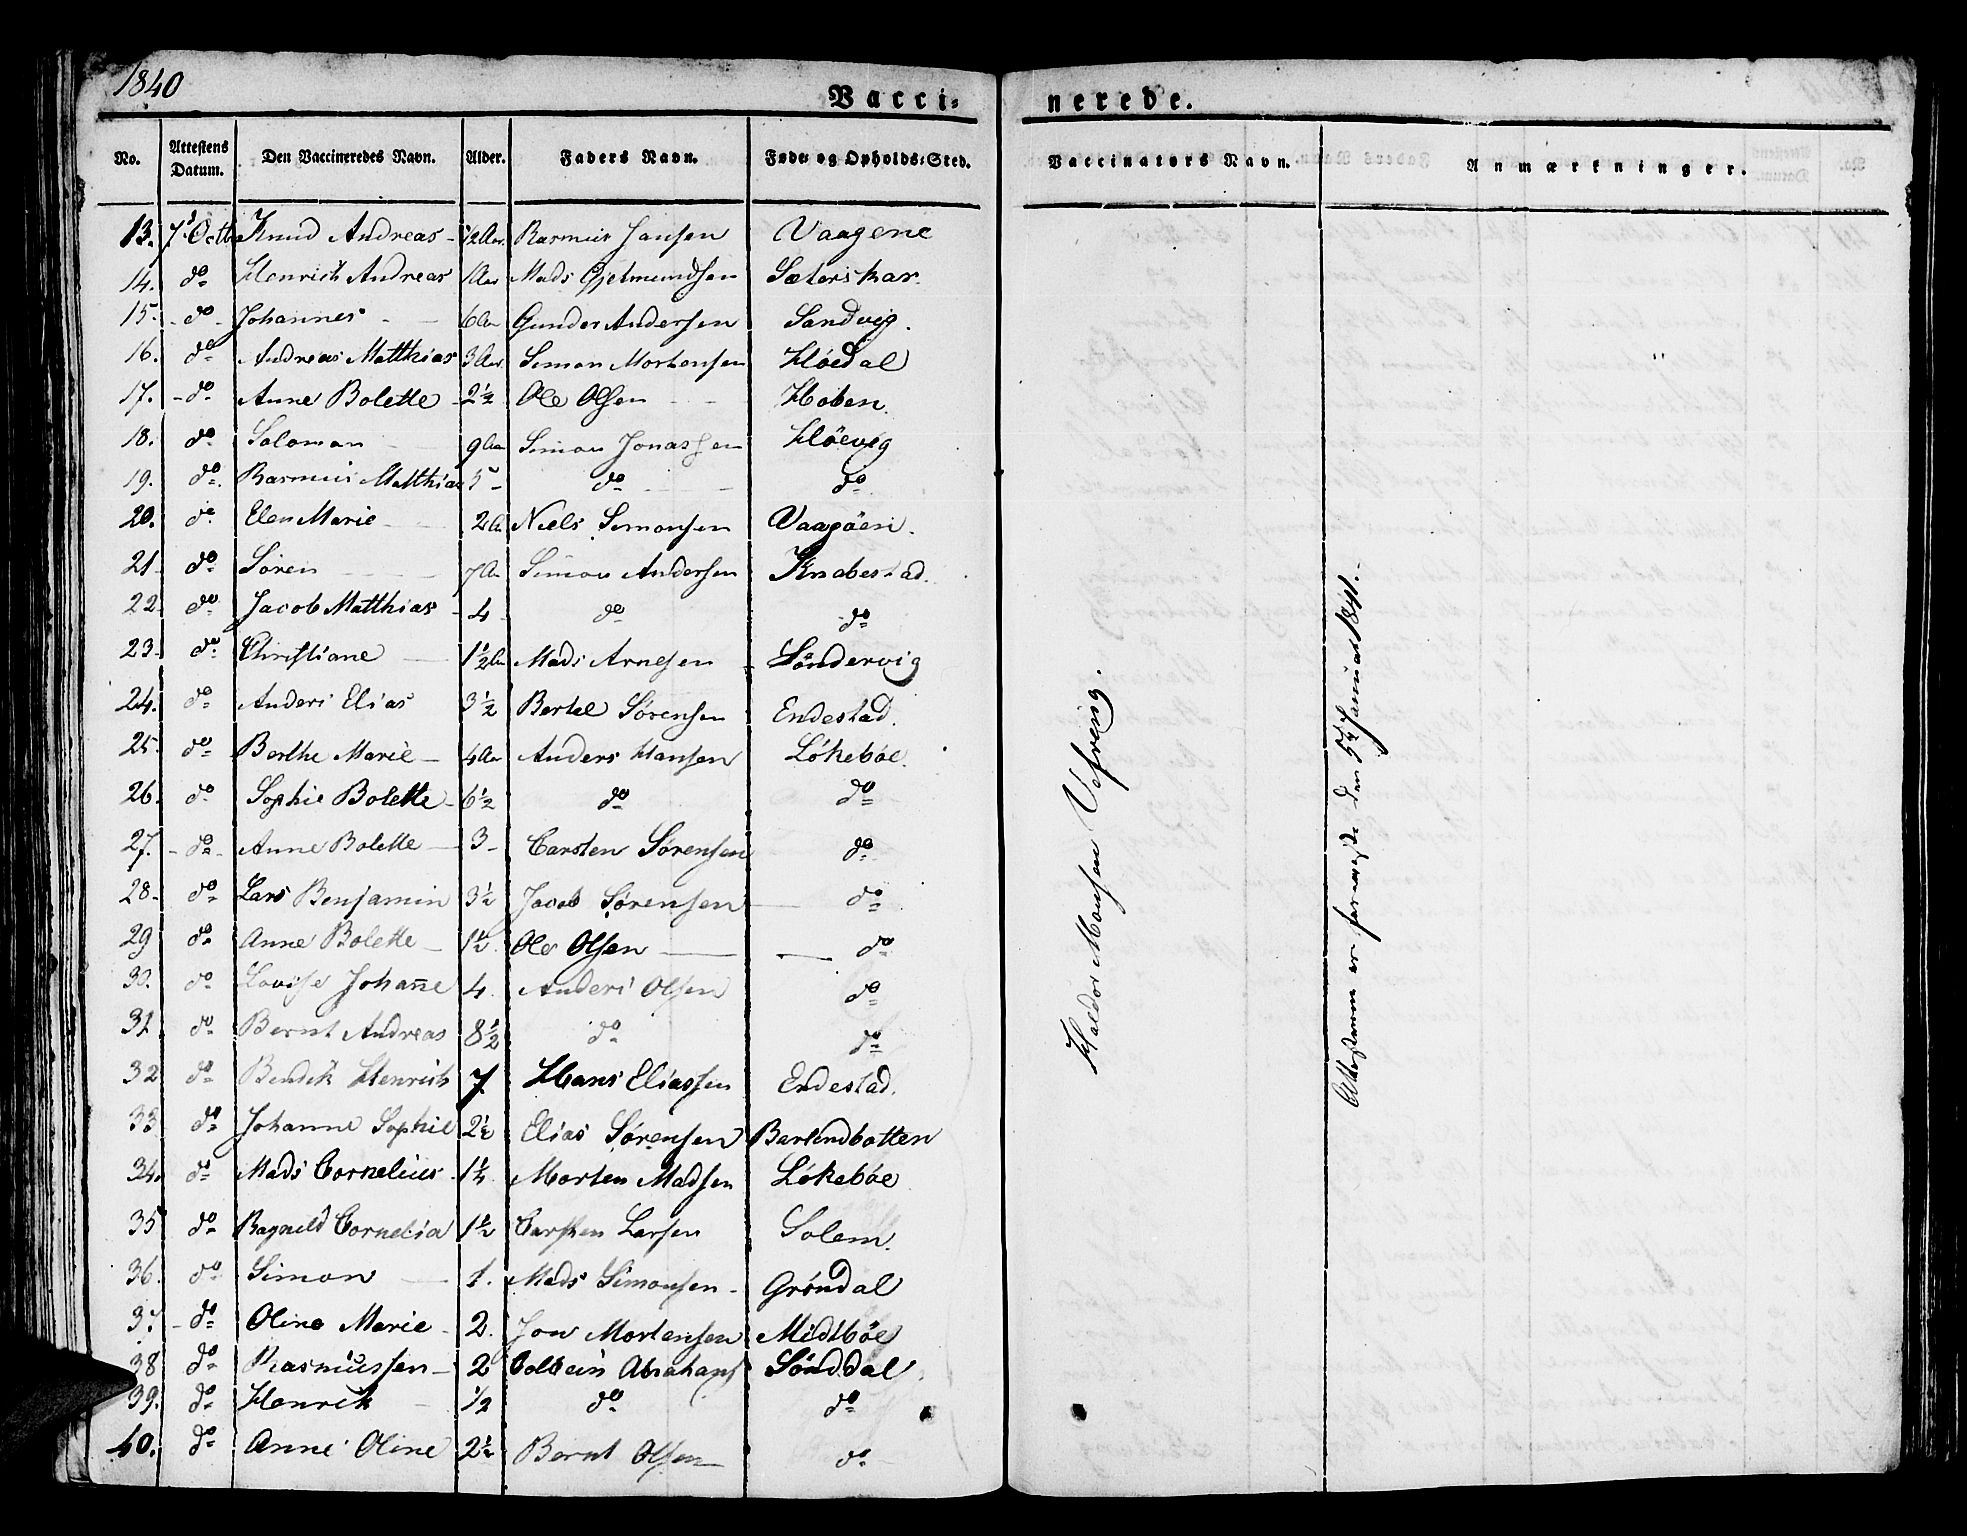 1840
Vacci= nerede.
No. Attestens Datum. Den Vaccineredes Navn. Alder. Faders Navn. Føde og Opholds=Sted. Vaccinators Navn. Anmærkninger.
13. 7d Octb Knud Andreas - 12 Aar. Rasmus Jansen Vaagene
14. do Henrich Andreas 1 Aar Mads Gjetmundsen Sæterskar.
15. - do - Johannes - 6 Aar Gunder Andersen Sandvig.
16. do Andreas Matthias 3 Aar. Simon Mortensen Høedal
17. - do Anne Bolette - 2½ Ole Olsen - - Hoben.
18. do Salomon 9 Aar Simon Jonassen Høevig
19. do. Rasmus Matthias 5 - do do
20. do Elen Marie - 2 Aar Niels Simonsen Vaagöen.
21 do Søren - 7 Aar Simon Andersen Knabestad.
22 do Jacob Matthias - 4 do do
23. do Christiane - 1½ Aar Mads Arnesen Søndervig
24. do Anders Elias 3½ Bertel Sørensen Endestad.
25. do Berthe Marie - 4 Aar Anders Hansen Løkebøe.
26. do Sophie Bolette - 6½ do do
27. - do - Anne Bolette - 3 - Carsten Sørensen do
28. do Lars Benjamin 3½ Jacob Sørensen do
29 do Anne Bolette - 1½ Ole Olsen - do
30. do Lovise Johan̄e 4. Anders Olsen do
31. do Bernt Andreas 8½ do do
32 do Bendik Henrich 7. Hans Eliassen Endestad.
33 do Johanne Sophie 2½ Elias Sørensen Berlindbotten
34. do Mads Cornelius 1¼ Morten Madsen Løkebøe
35 do Ragnild Cornelia 1½ Carsten Larsen Solem.
36. do Simon - 1. Mads Simonsen - Grøndal
37 - do Oline Marie - 2. Jon Mortensen Midtbøe
38 do Rasmussen - 2 Colbein Abrahams Sønddal
39. do Henrik - 1/2 do do
40. do Anne Oline 2½ Bernt Olsen do
Haldor Monsen Vefring.
Attesterne er forevigste den 5te Januar 1841.